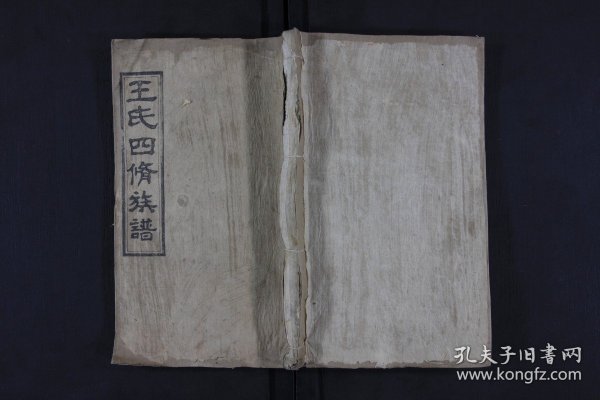 王氏四脩族譜
孔夫子旧書网
www.kongfz.com